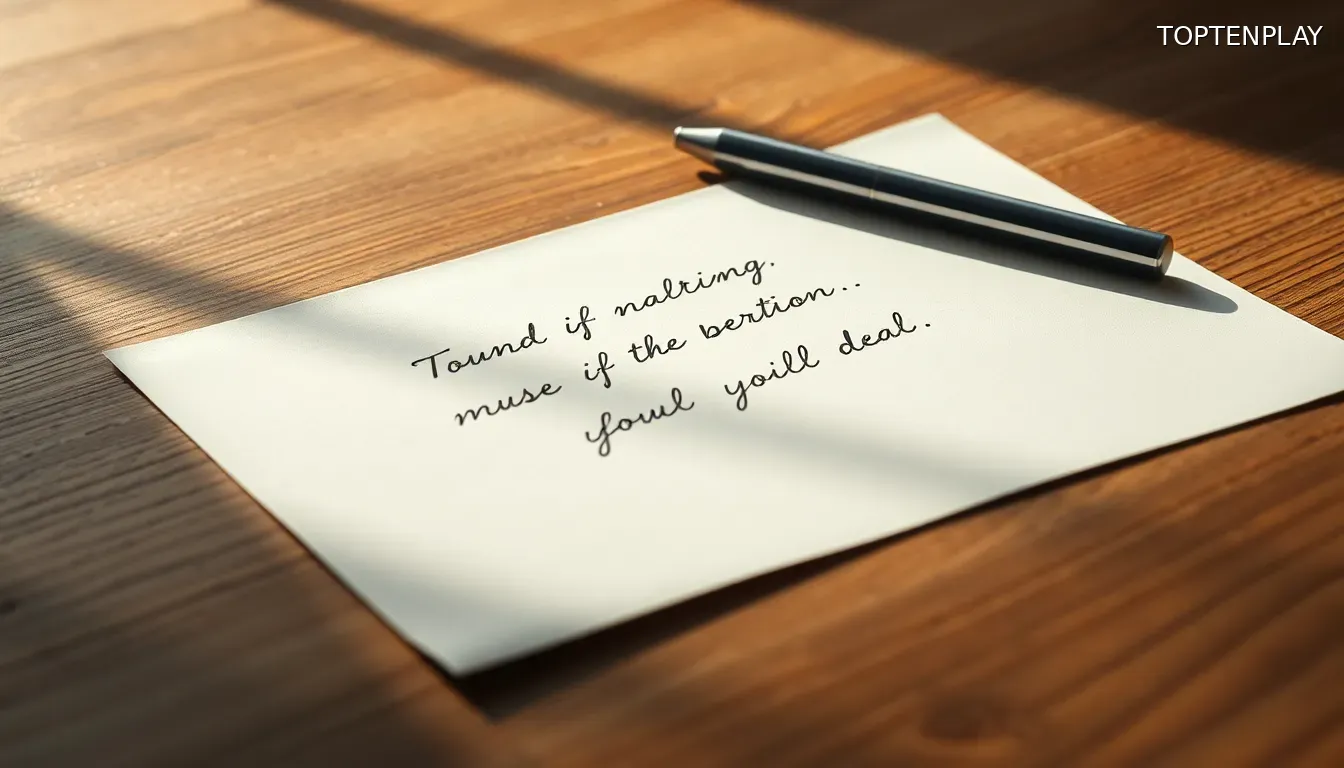 TOPTENPLAY
Tound if nalrimg.
muse if the bertion..
yowl yoill deal.